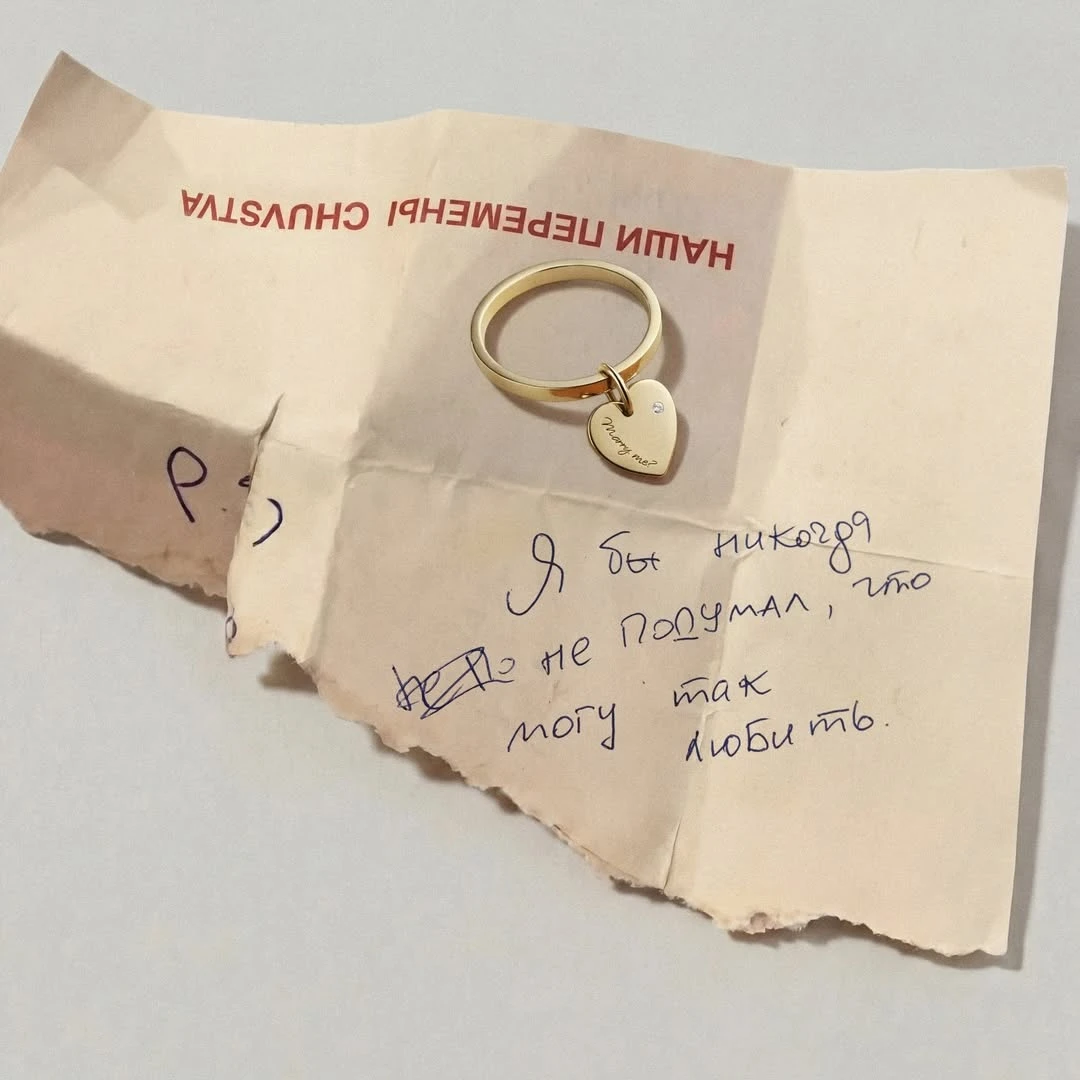 НАШИ ПЕРЕМЕНЫ CHUVSTVA
Marry me?
P.S
Я бы никогда
не подумал, что
могу так
любить.